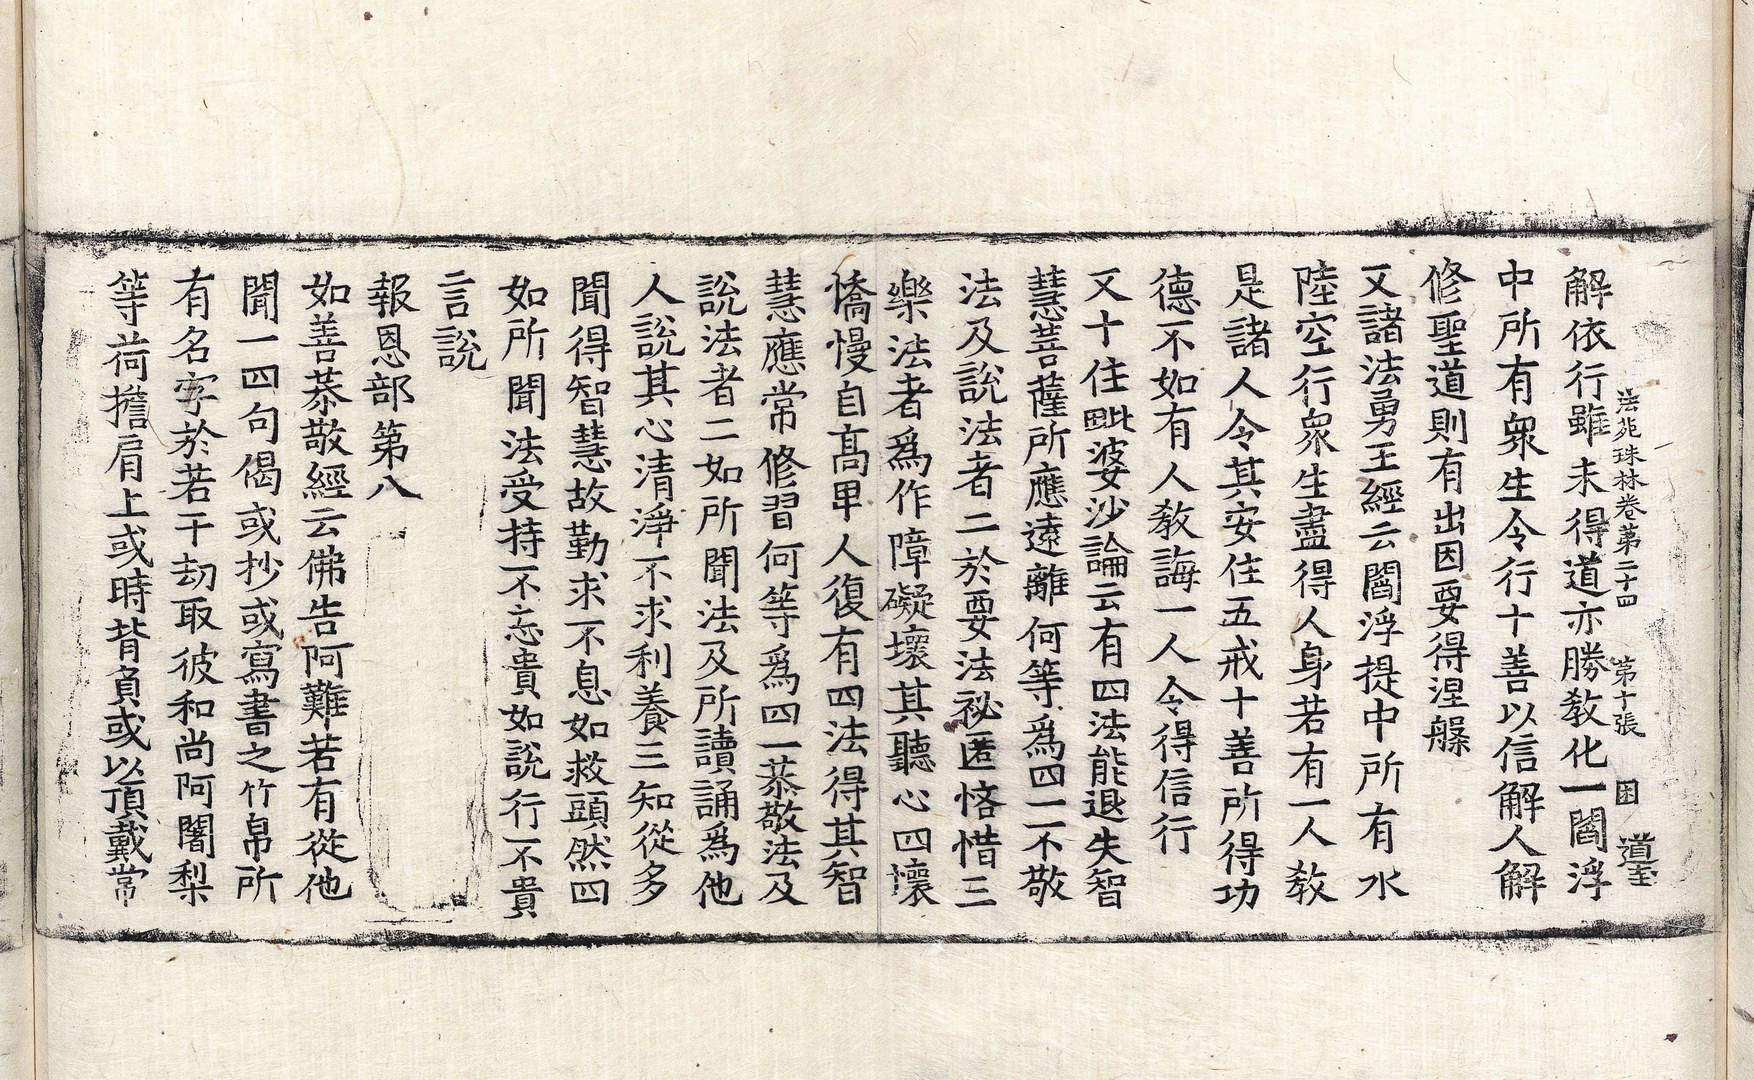 法苑珠林卷第二十四　第十張　困　道𡉄
解依行雖未得道亦勝教化一閻浮
中所有衆生令行十善以信解人解
修聖道則有出因要得涅槃
又諸法勇王經云閻浮提中所有水
陸空行衆生盡得人身若有一人教
是諸人令其安住五戒十善所得功
德不如有人教誨一人令得信行
又十住毗婆沙論云有四法能退失智
慧菩薩所應遠離何等爲四一不敬
法及說法者二於要法祕匿悋惜三
樂法者爲作障礙壞其聽心四壞
憍慢自高卑人復有四法得其智
慧應常修習何等爲四一恭敬法及
說法者二如所聞法及所讀誦爲他
人說其心清淨不求利養三知從多
聞得智慧故勤求不息如救頭然四
如所聞法受持不忘貴如說行不貴
言說
報恩部第八
如善恭敬經云佛告阿難若有從他
聞一四句偈或抄或寫書之竹帛所
有名字於若干劫取彼和尚阿闍梨
等荷擔肩上或時背負或以頂戴常